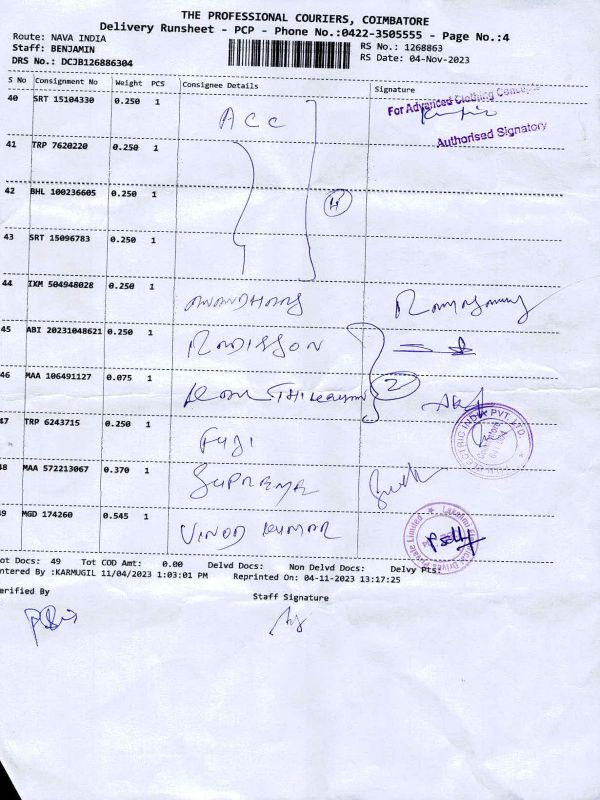 THE PROFESSIONAL COURIERS, COIMBATORE
Delivery Runsheet - PCP - Phone No.:0422-3505555 - Page No.:4
Route: NAVA INDIA
RS No.: 1268863
Staff: BENJAMIN
RS Date: 04-Nov-2023
DRS No.: DCJB126886304
S No Consignment No Weight PCS Consignee Details Signature
40 SRT 15104330 0.250 1 ACC
For Advanced Clothing
Authorised Signatory
41 TRP 7620220 0.250 1
42 BHL 100236605 0.250 1
4
43 SRT 15096783 0.250 1
44 IXM 504948028 0.250 1
45 ABI 20231048621 0.250 1 RADISSON
46 MAA 106491127 0.075 1
2
47 TRP 6243715 0.250 1 FUJI
ELECTRIC INDIA PVT. LTD.
48 MAA 572213067 0.370 1 SUPREME
49 MGD 174260 0.545 1 VINOD KUMAR
Drives Private Limited
ot Docs: 49 Tot COD Amt: 0.00 Delvd Docs: Non Delvd Docs: Delvy Pts:
ntered By :KARMUGIL 11/04/2023 1:03:01 PM Reprinted On: 04-11-2023 13:17:25
erified By
Staff Signature